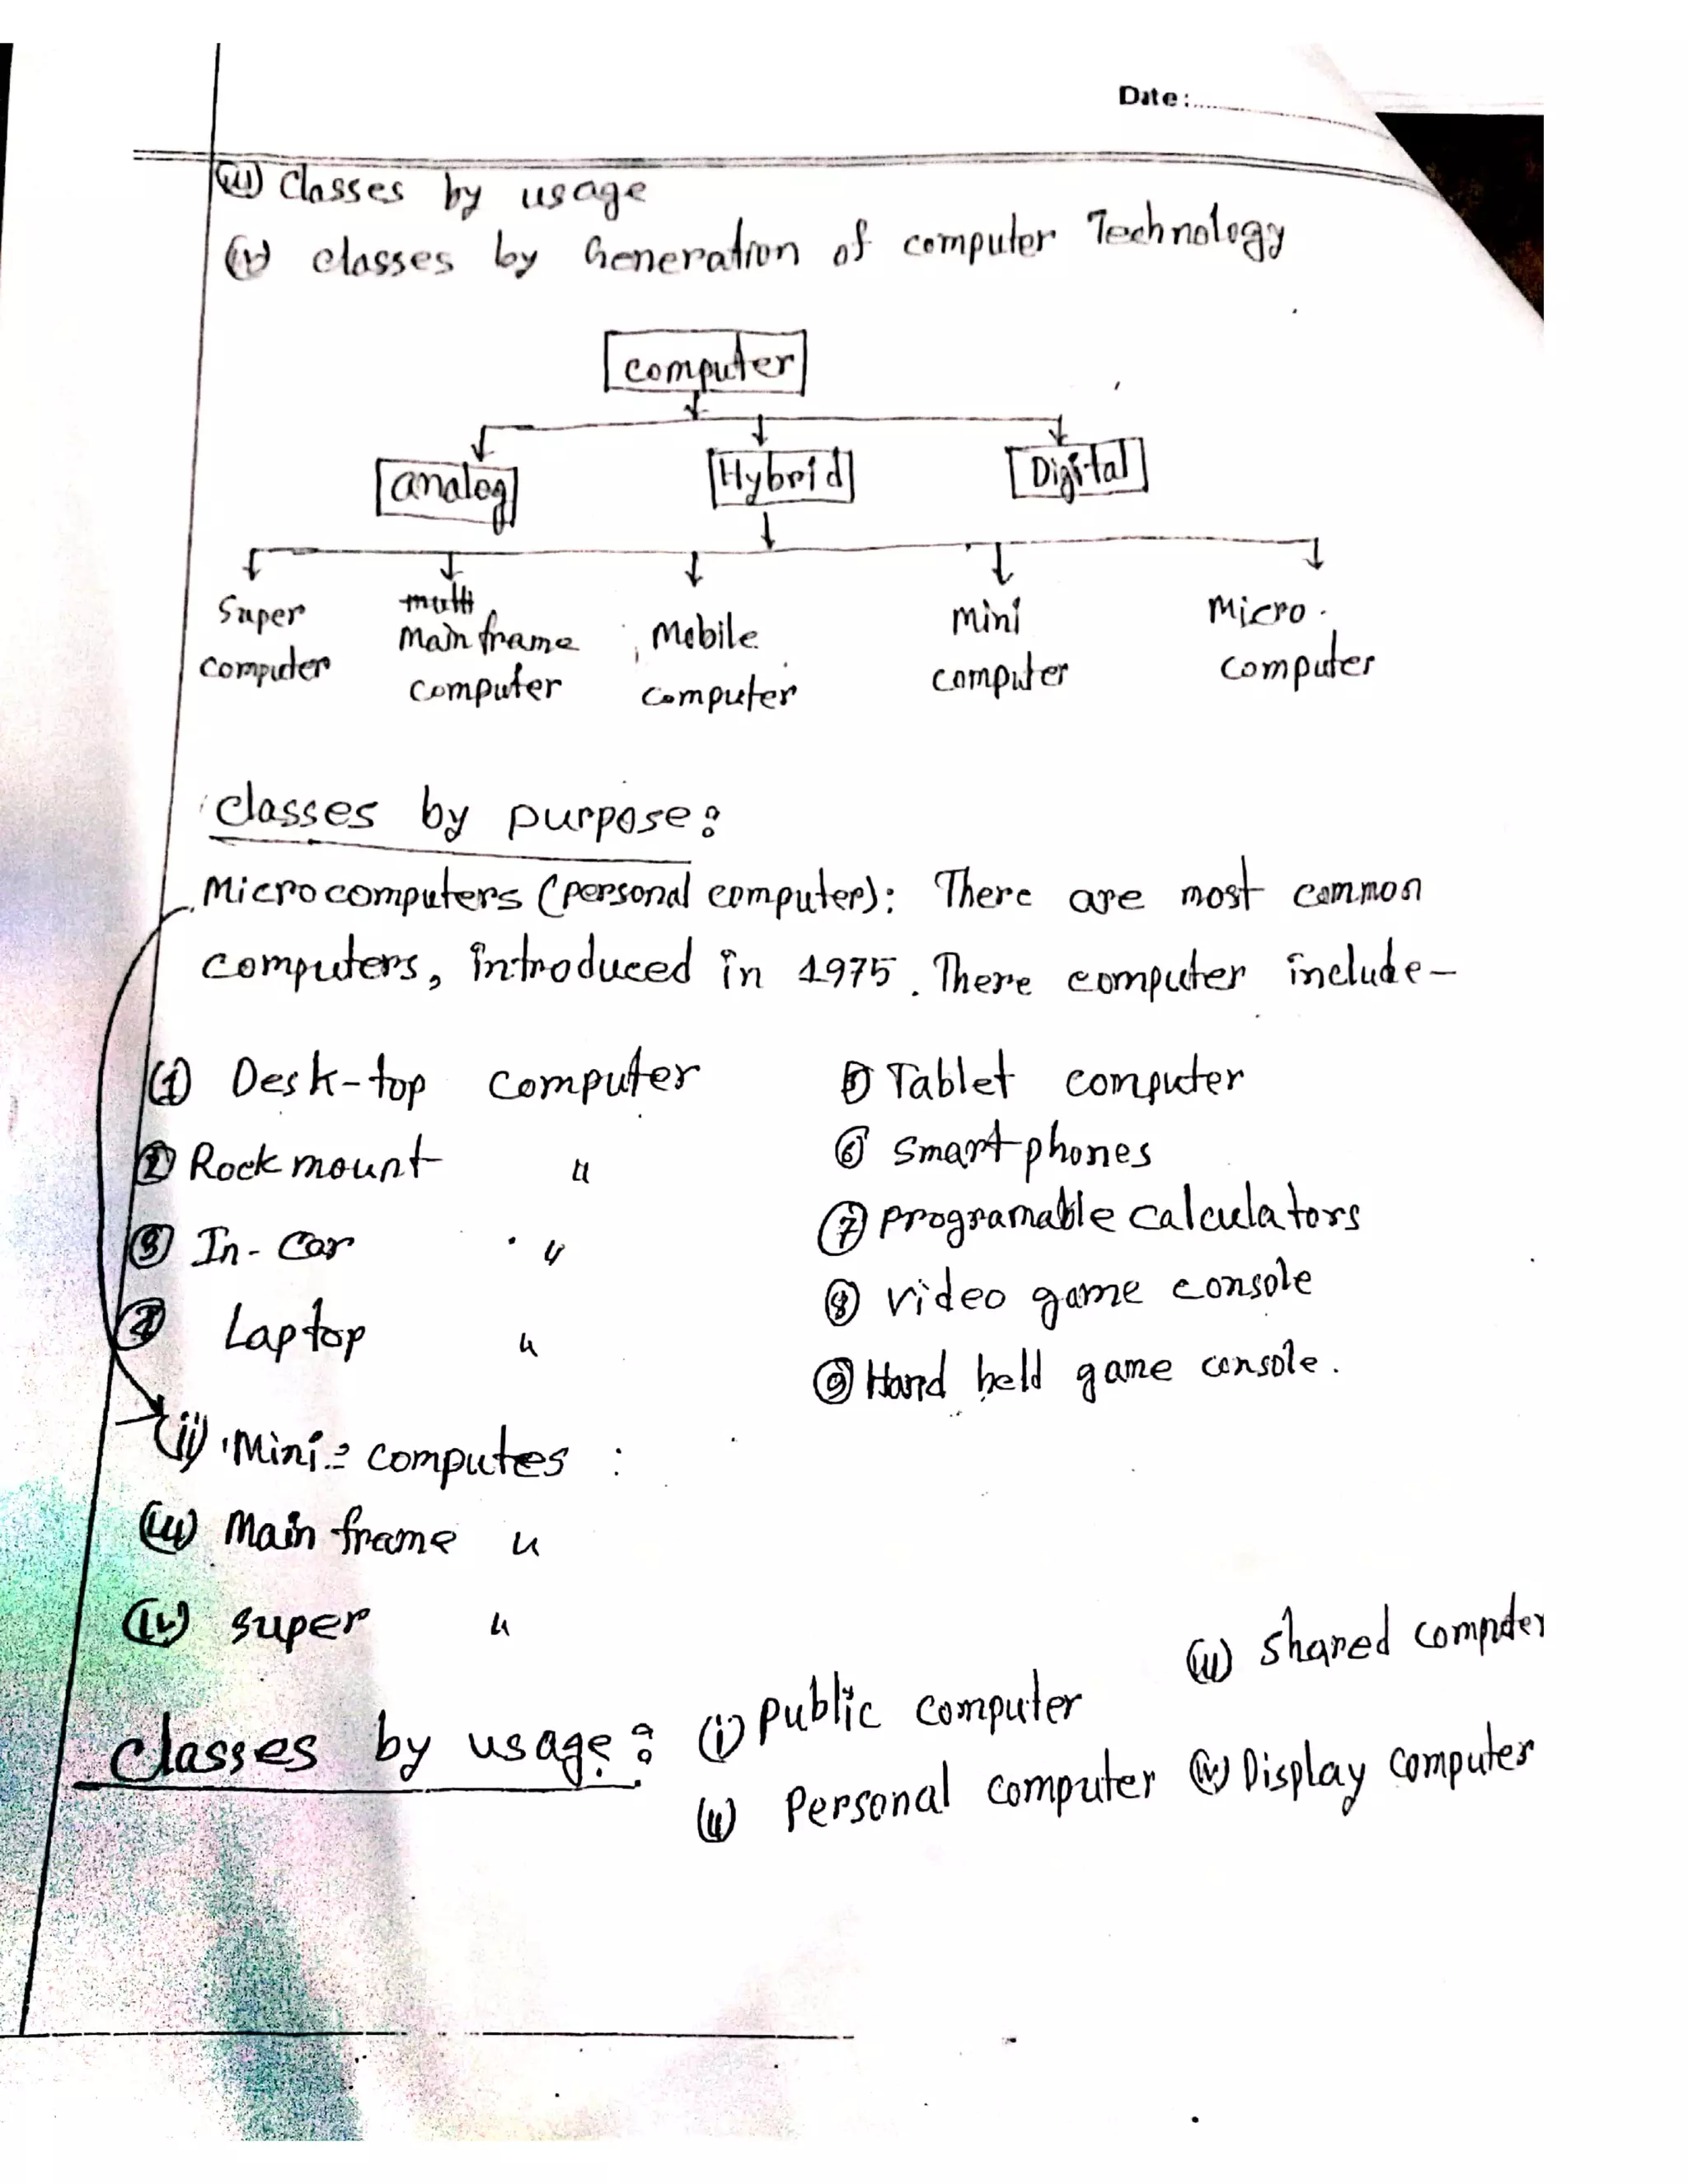 Date:
(iii) Classes by usage
(iv) classes by Generation of computer Technology
computer
analog Hybrid Digital
Super computer
multi
Main frame computer
Mobile computer
mini computer
Micro computer
classes by purpose:
Microcomputers (personal computer): There are most common
computers, introduced in 1975. There computer include-
(1) Desk-top computer
(2) Rock mount "
(3) In-car "
(4) Laptop "
(5) Tablet computer
(6) Smart phones
(7) programable calculators
(8) video game console
(9) Hand held game console.
(ii) Mini computes :
(iii) Main frame "
(iv) super "
classes by usage:
(i) public computer
(ii) Personal computer
(iii) shared computer
(iv) Display computer